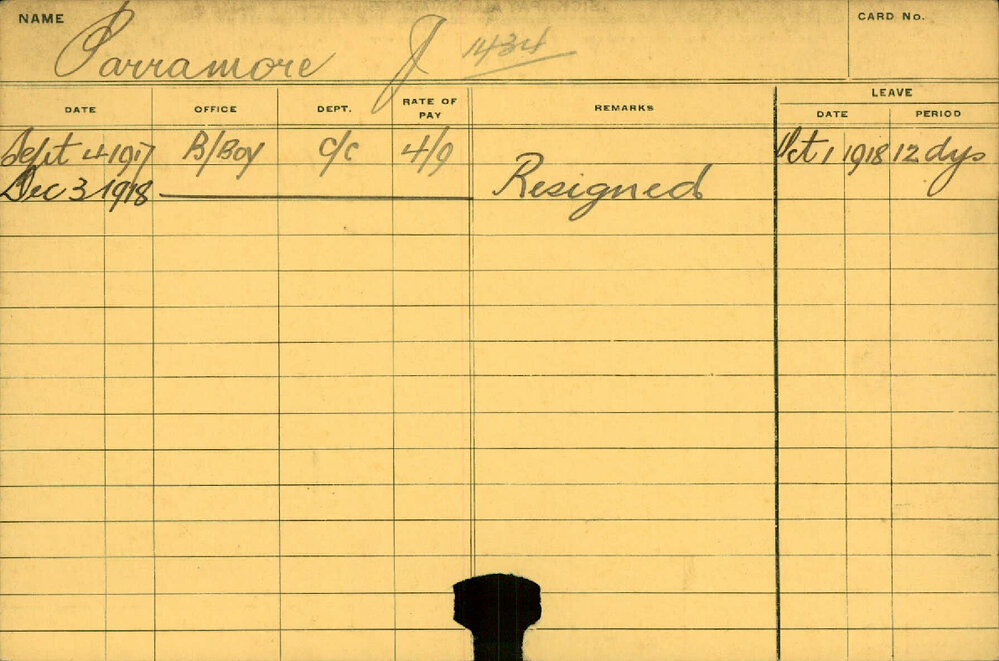 NAME Parramore J 1434 CARD No.
DATE OFFICE DEPT. RATE OF PAY REMARKS LEAVE
DATE PERIOD
Sept 4 1917 B/Boy c/c 4/9 Oct 1 1918 12 dys
Dec 3 1918 Resigned